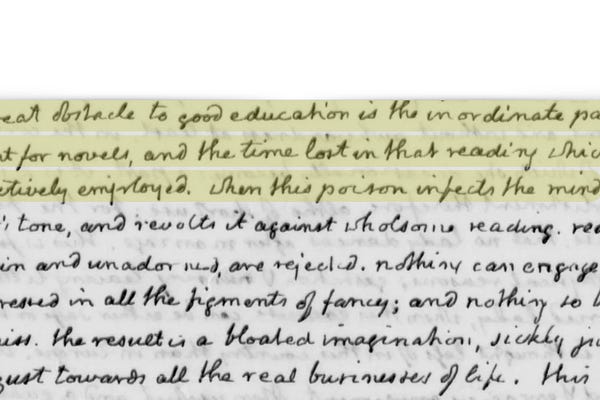 reat obstacle to good education is the inordinate pa
nt for novels, and the time lost in that reading whic
ctively employed. when this poison infects the mind
s tone, and revolts it against wholsome reading. rea
in and unadorned, are rejected. nothing can engage
ressed in all the figments of fancy; and nothing so b
iss. the result is a bloated imagination, sickly ju
gust towards all the real businesses of life. this